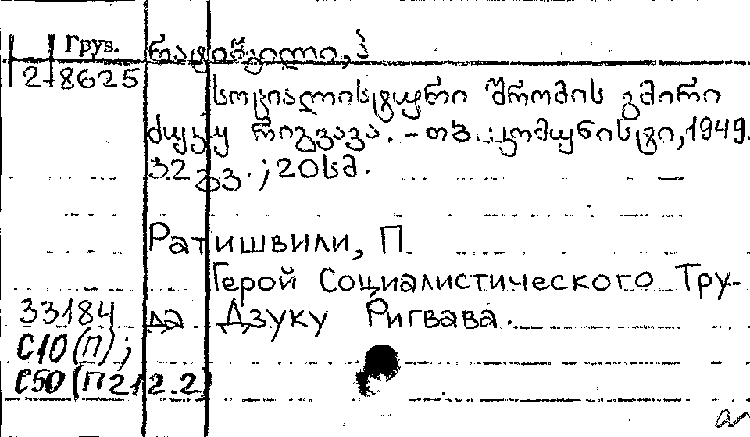 Груз.
რატიშვილი, პ
2-8625
სოციალისტური შრომის გმირი
ძუკუ რიგვავა. - თბ.: კომუნისტი, 1949.
32 გვ.; 20 სმ.
Ратишвили, П
Герой Социалистического Тру-
33184 да Дзуку Ригвава.
С10(П);
С50(П212.2)